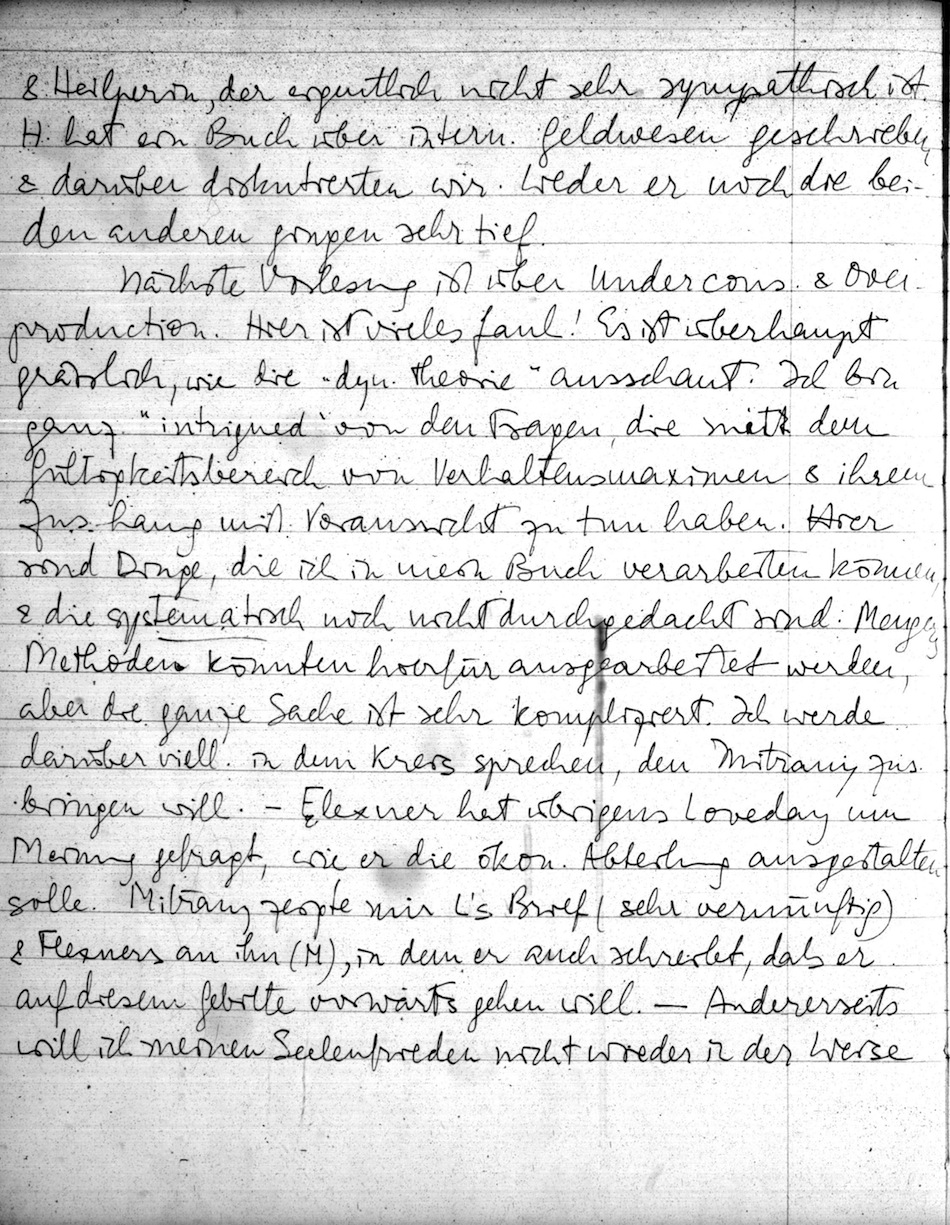 & Heilperin, der eigentlich nicht sehr sympathisch ist.
H. hat ein Buch über intern. Geldwesen geschrieben
& darüber diskutierten wir. Weder er noch die bei-
den anderen gingen sehr tief.
Nächste Vorlesung ist über Undercons. & Over-
production. Hier ist vieles faul! Es ist überhaupt
grässlich, wie die "dyn. Theorie" ausschaut. Ich bin
ganz "intrigued" von den Fragen, die mit dem
Gültigkeitsbereich von Verhaltensmaximen & ihrem
Zus.hang mit Voraussicht zu tun haben. Hier
sind Dinge, die ich in mein Buch verarbeiten könnte,
& die systematisch noch nicht durchgedacht sind. Mengers
Methoden könnten hierfür ausgearbeitet werden,
aber die ganze Sache ist sehr kompliziert. Ich werde
darüber viell. in dem Kreis sprechen, den Mitrany zus.
bringen will. – Flexner hat übrigens Loveday um
Meinung gefragt, wie er die ökon. Abteilung ausgestalten
solle. Mitrany zeigte mir L's Brief (sehr vernünftig)
& Flexners an ihn (M), in dem er auch schreibt, daß er
auf diesem Gebiete vorwärts gehen will. — Andererseits
will ich meinen Seelenfrieden nicht wieder in der Weise